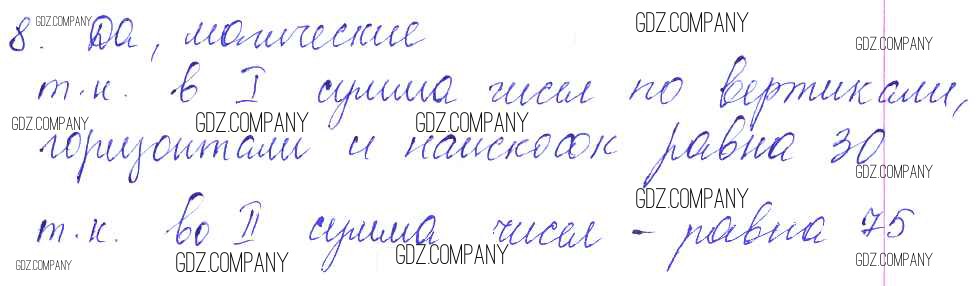 8. Да, магические
т.к. в I сумма чисел по вертикали,
горизонтали и наискосок равна 30
т.к. во II сумма чисел - равна 75
GDZ.COMPANY
GDZ.COMPANY
GDZ.COMPANY
GDZ.COMPANY
GDZ.COMPANY
GDZ.COMPANY
GDZ.COMPANY
GDZ.COMPANY
GDZ.COMPANY
GDZ.COMPANY
GDZ.COMPANY
GDZ.COMPANY